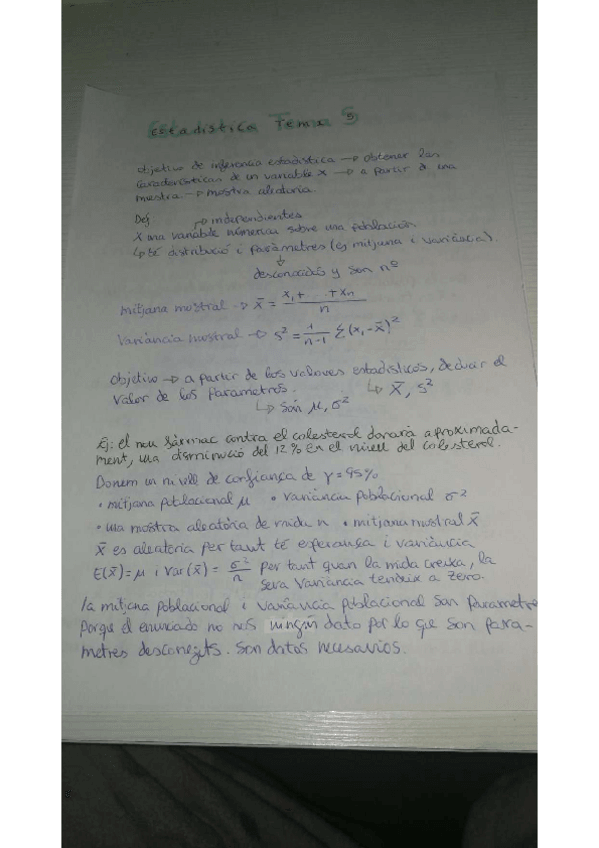 Estadistica Tema 5
Objetivo de inferencia estadística → obtener las
características de un variable X → a partir d una
muestra → mostra aleatoria.
Def → independientes
X una variable númerica sobre una población
↳ té distribució i paràmetres (ej mitjana i variància).
↓
desconocidos y son nº
mitjana mostral → x̄ = x₁+ ... +xn / n
Variància mostral → s² = 1/n-1 Σ(x₁-x̄)²
Objetivo → a partir de los valores estadísticos, deducir el
valor de los parametros. ↳ X̄, s²
↳ Són μ, σ²
Ej: el nou fàrmac contra el colesterol donarà aproximada-
ment, una disminució del 12% en el nivell del colesterol.
Donem un nivell de confiança de γ=95%
• mitjana poblacional μ • variància poblacional σ²
• una mostra aleatòria de mida n • mitjana mostral X̄
X̄ es aleatòria per tant té esperança i variància
E(X̄)=μ i Var(X̄) = σ²/n Per tant quan la mida creixa, la
seva variància tendix a zero.
la mitjana poblacional i variància poblacional son parametre
Porque el enunciado no ningún dato por lo que son para-
metres desconejuts. Son datos necesarios.